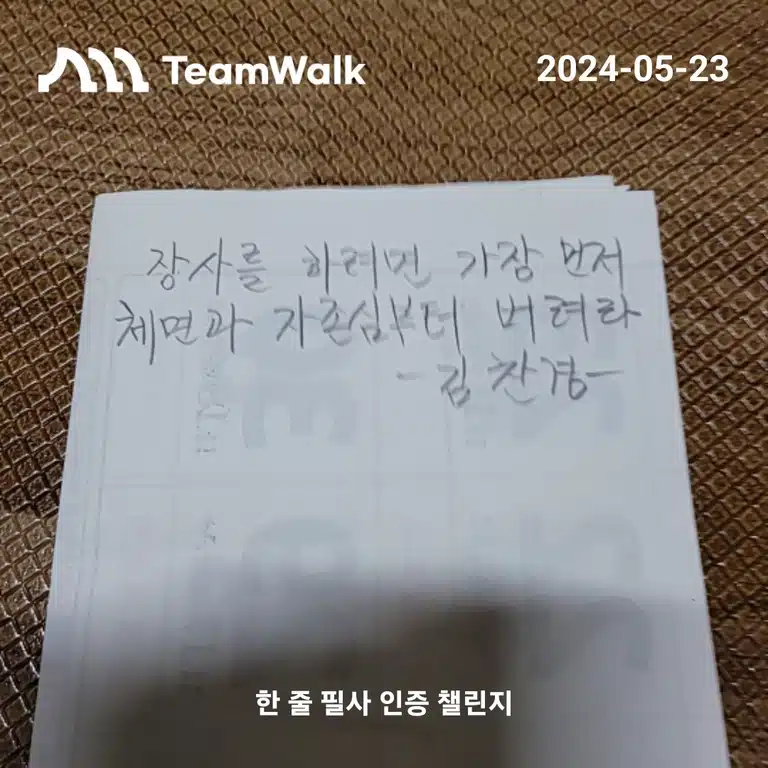 TeamWalk
2024-05-23
장사를 하려면 가장 먼저
체면과 자존심부터 버려라
- 김찬경 -
한 줄 필사 인증 챌린지